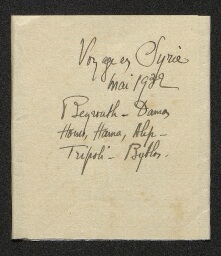 Voyage en Syrie
mai 1932
Beyrouth - Damas
Homs, Hama, Alep -
Tripoli - Byblos.